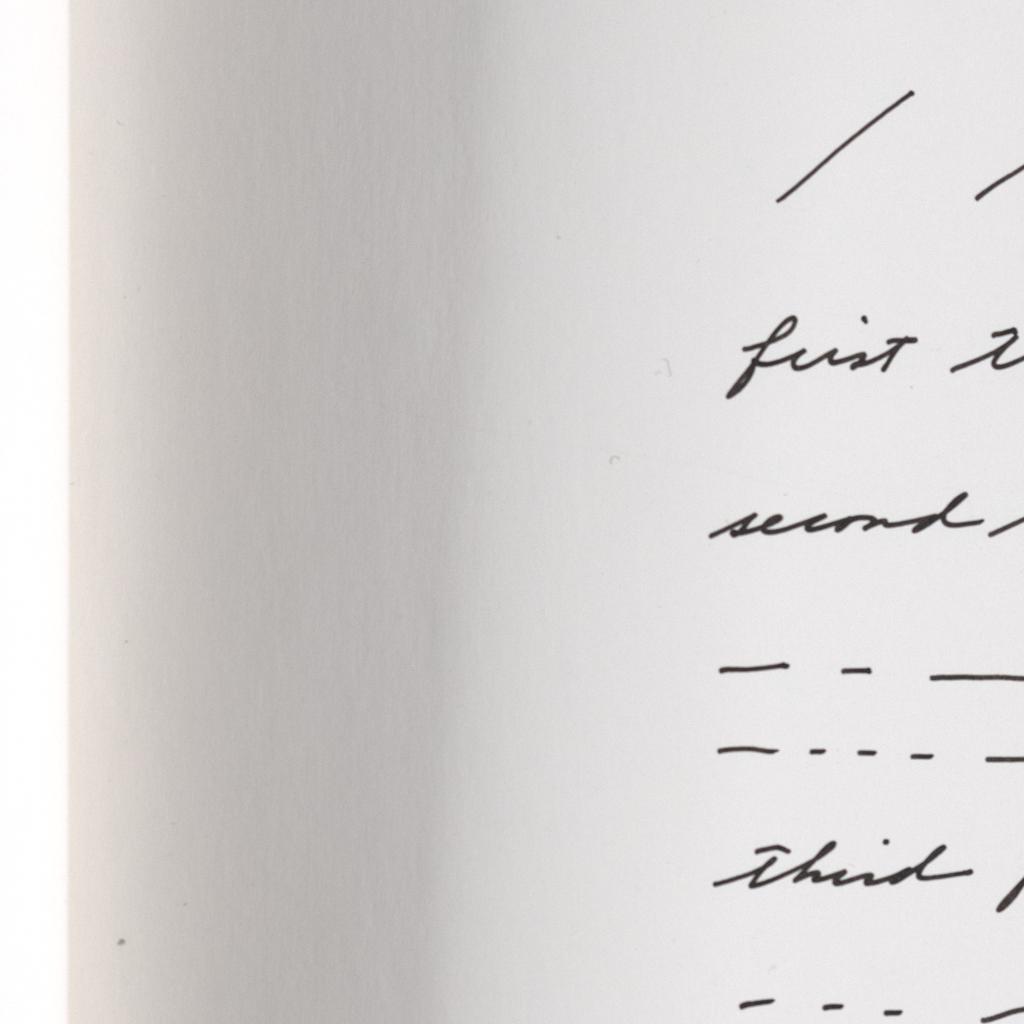 first
second
third